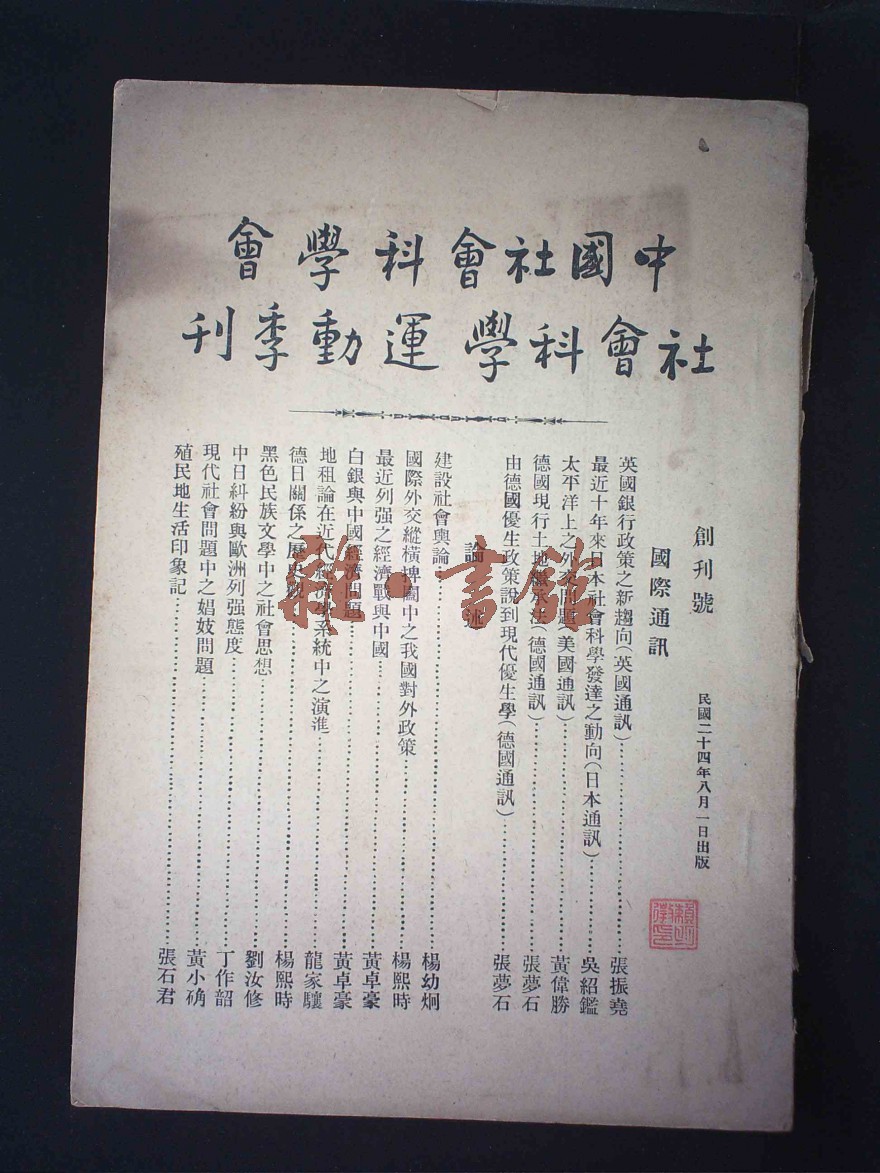 中國社會科學會
社會科學運動季刊
創刊號
民國二十四年八月一日出版
國際通訊
英國銀行政策之新趨向(英國通訊)……張振堯
最近十年來日本社會科學發達之動向(日本通訊)……吳紹鑑
太平洋上之外交問題(美國通訊)……黃偉勝
德國現行土地繼承法(德國通訊)……張夢石
由德國優生政策說到現代優生學(德國通訊)……張夢石
論述
建設社會輿論……楊幼炯
國際外交縱橫捭闔中之我國對外政策……楊熙時
最近列强之經濟戰與中國……黃卓豪
白銀與中國經濟問題……黃卓豪
地租論在近代經濟學系統中之演進……龍家驤
德日關係之歷史觀……楊熙時
黑色民族文學中之社會思想……劉汝修
中日糾紛與歐洲列强態度……丁作韶
現代社會問題中之娼妓問題……黃小确
殖民地生活印象記……張石君
雜·書館